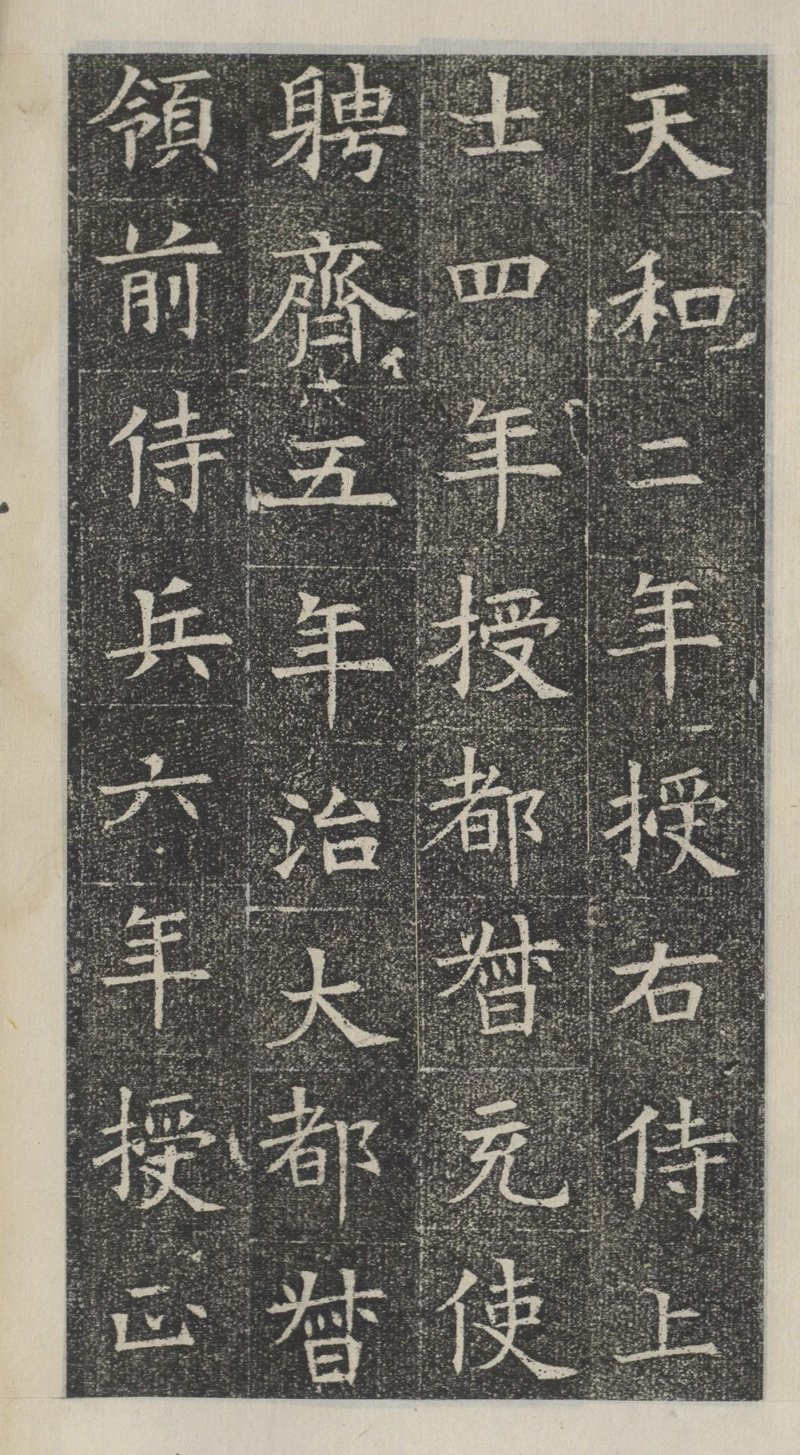 天和二年授右侍上
士四年授都督充使
聘齊五年治大都督
領前侍兵六年授正